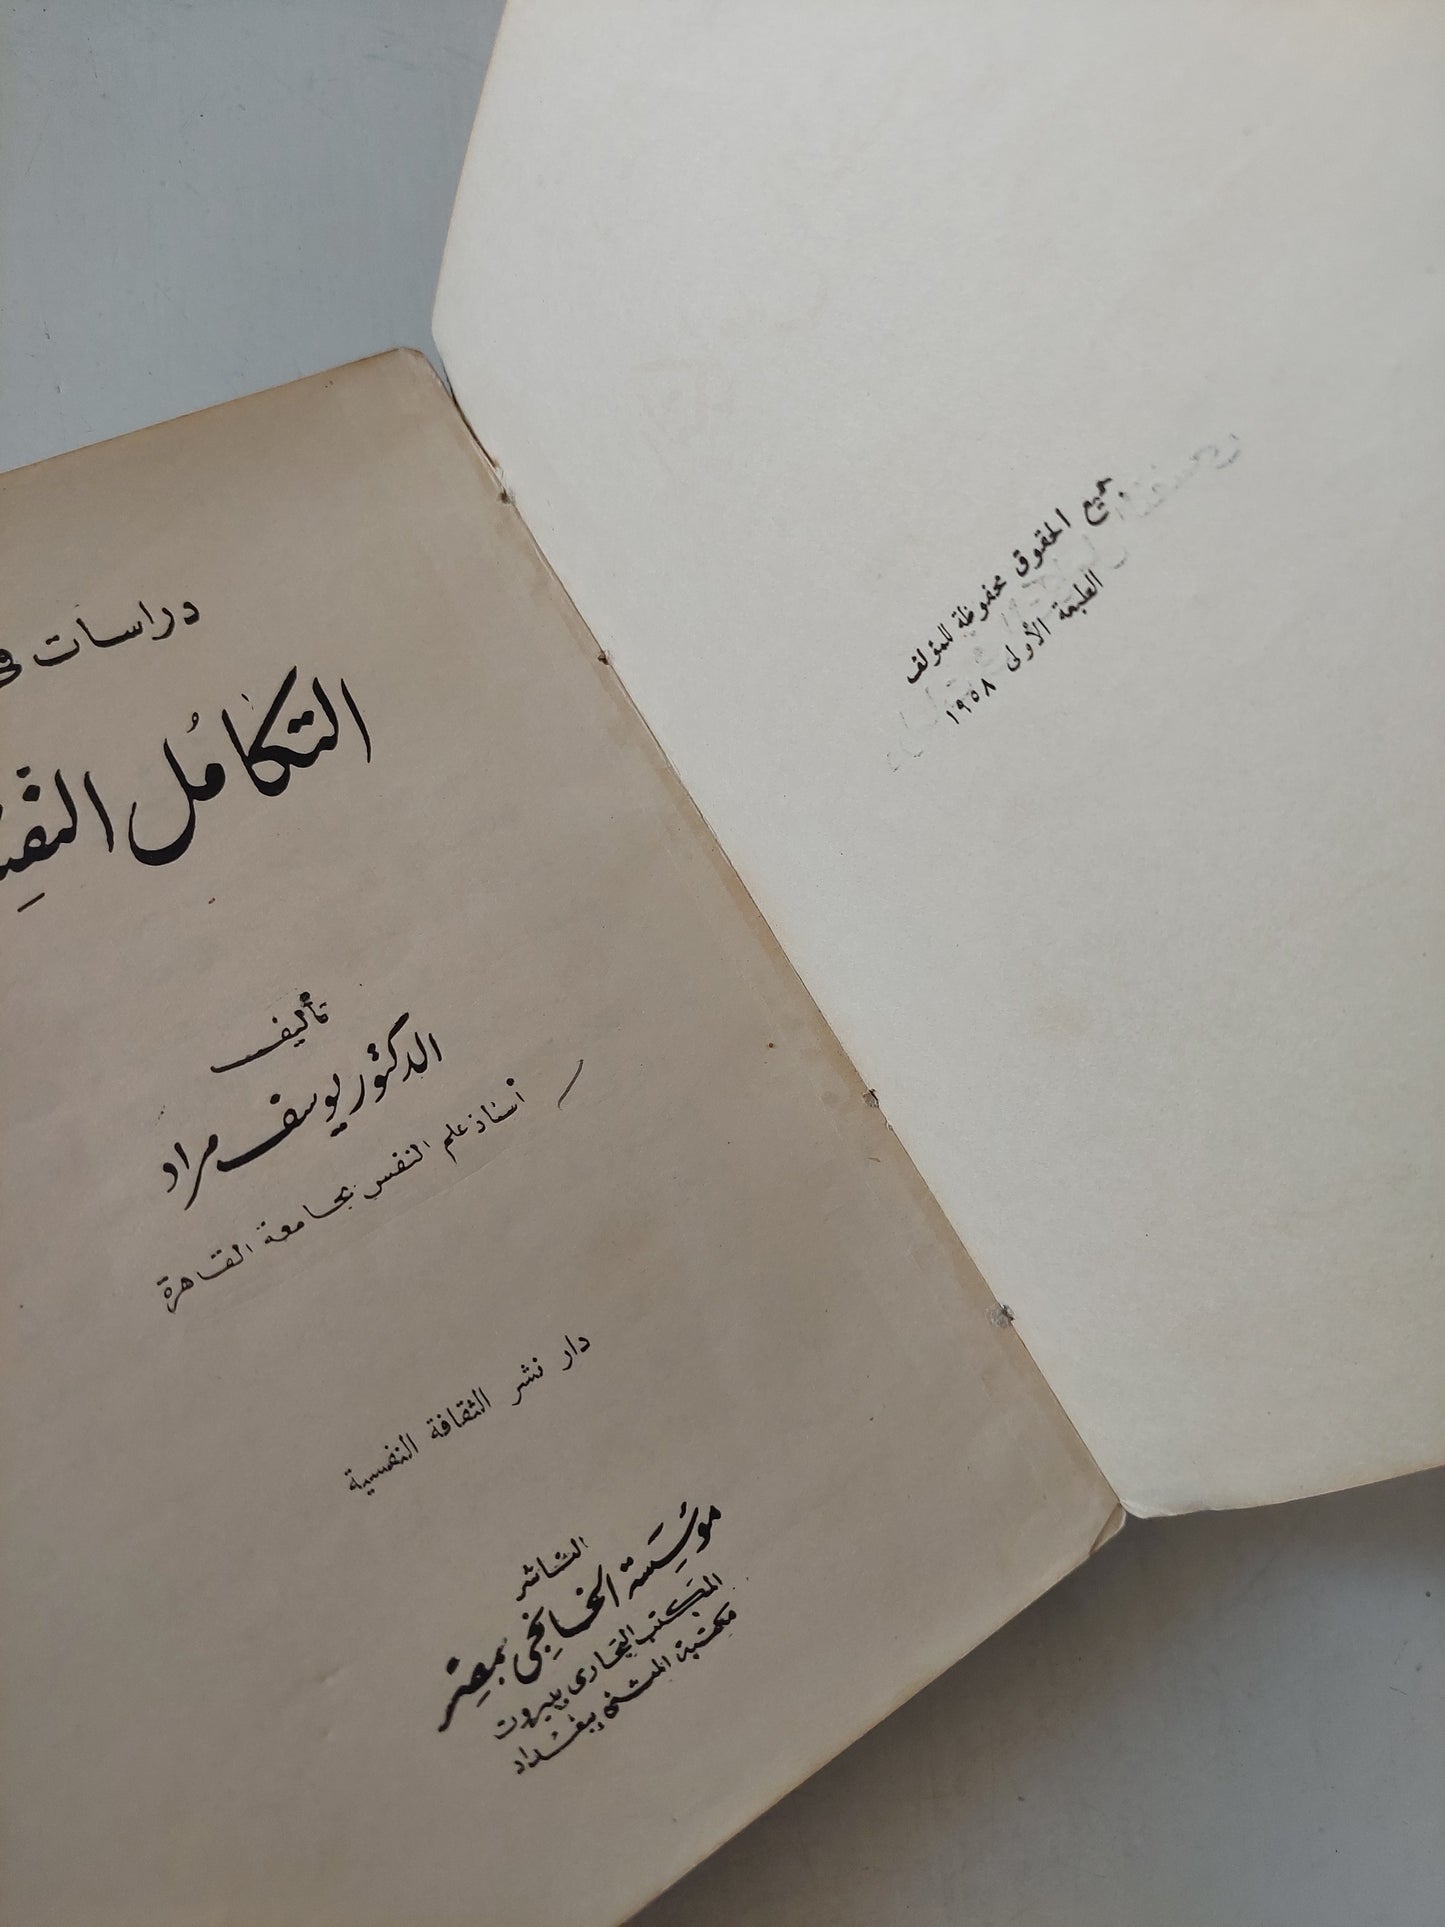 جميع الحقوق محفوظة للمؤلف
الطبعة الأولى ١٩٥٨
دراسات في
التكامُل النفسي
تأليف
الدكتور يوسف مراد
أستاذ علم النفس بجامعة القاهرة
دار نشر الثقافة النفسية
الناشر
مؤسسة الخانجي بمصر
المكتب التجاري ببيروت
مكتبة المثنى ببغداد